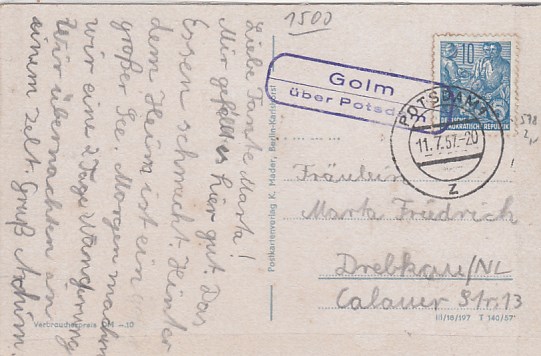 1500
Liebe Tante Marta!
Mir gefällt es hier gut. Das
Essen schmeckt. Hinter
dem Heim ist ein
großer See. Morgen machen
wir eine 2 Tage Wanderung
Wir übernachten an
einem Zelt. Gruß Achim.
Vertraudlespreis DM -.10
Postkartenverlag K. Mader, Berlin-Karlshorst
Golm
über Potsdam
POTSDAM
11.7.57.-20
z
10
DEMOKRATISCHE REPUBLIK
578
Fräulein
Marta Friedrich
Drebkau/NL
Calauer Str. 13
III/18/197 T 140/57